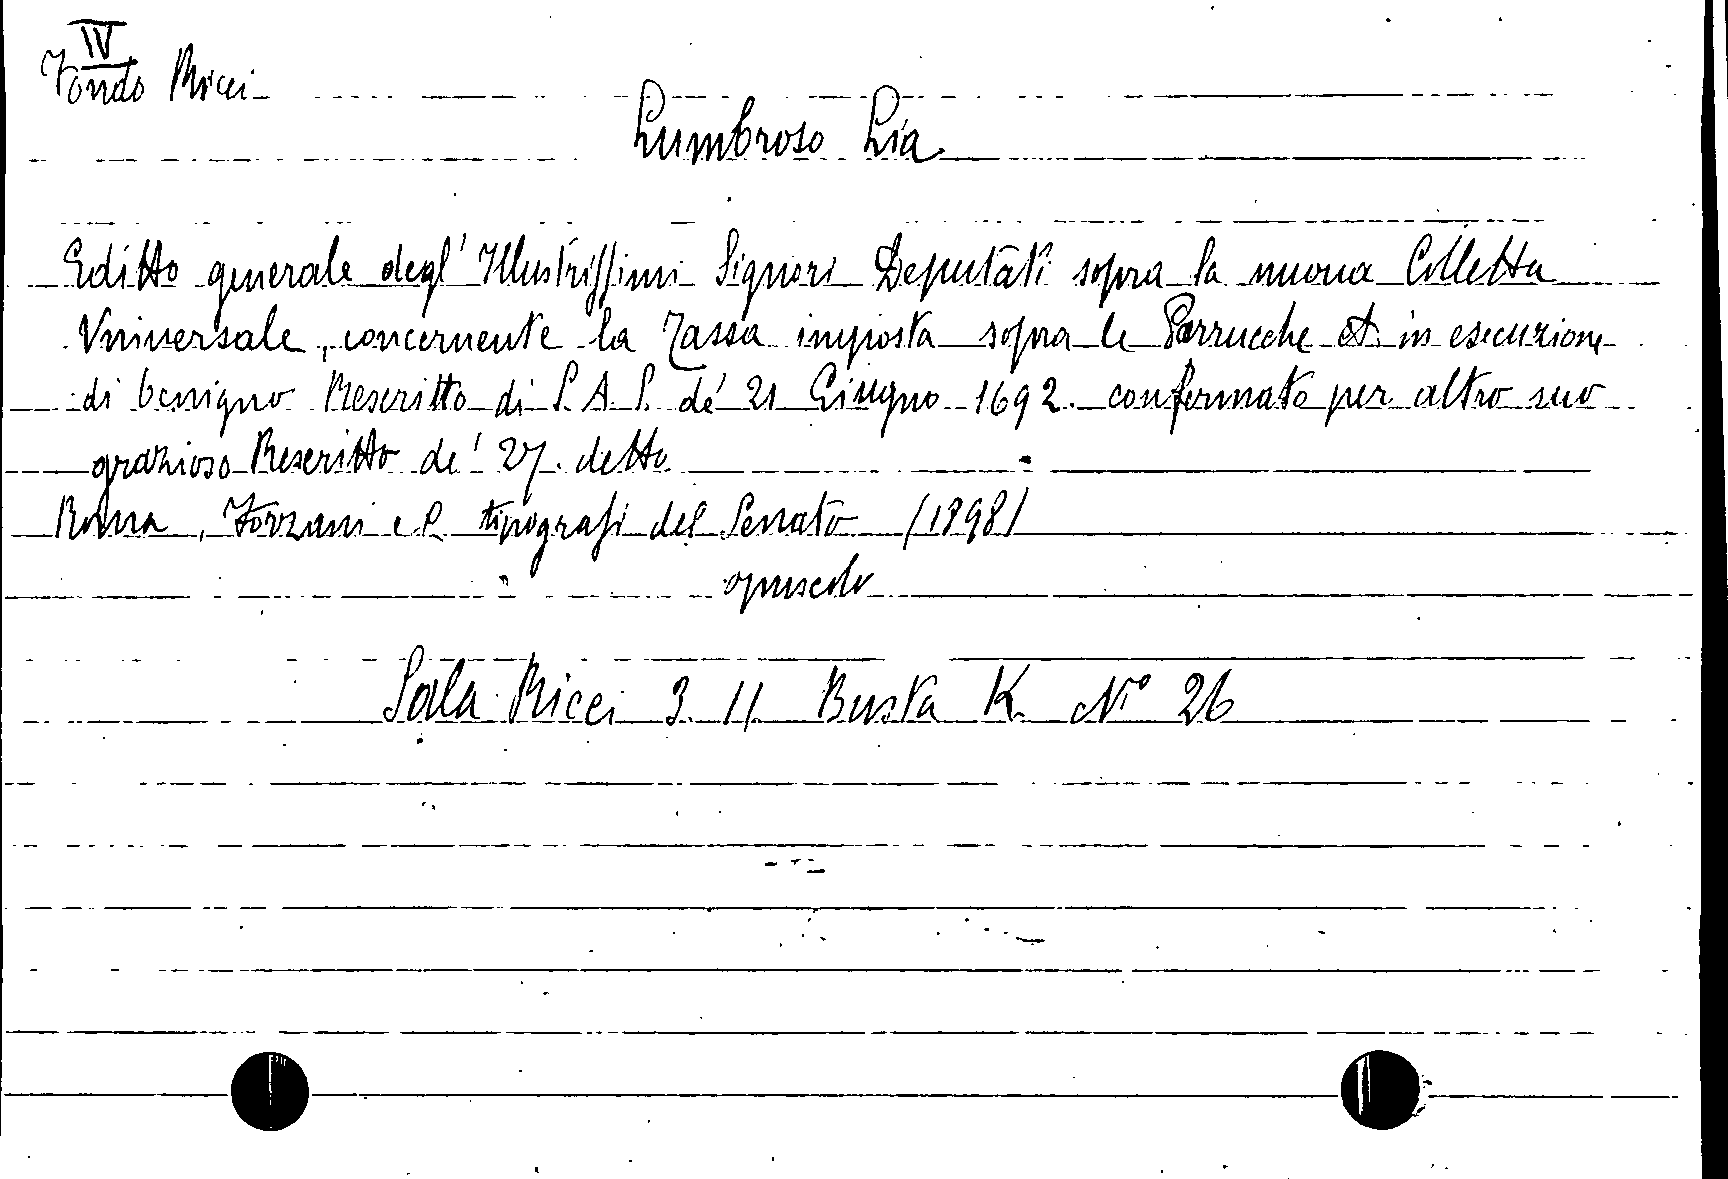 IV
Fondo Ricci
Lumbroso Lia
Editto generale degl' Illustrissimi Signori Deputati sopra la nuova Colletta
Vniversale, concernente la Tassa imposta sopra le Parrucche et in esecuzione
di benigno Rescritto di S. A. S. de' 21 Giugno 1692. confermato per altro suo
grazioso Rescritto de' 27. detto
Roma, Forzani e C. tipografi del Senato (1898)
opuscolo
Sala Ricci 3. 11. Busta K. N° 26